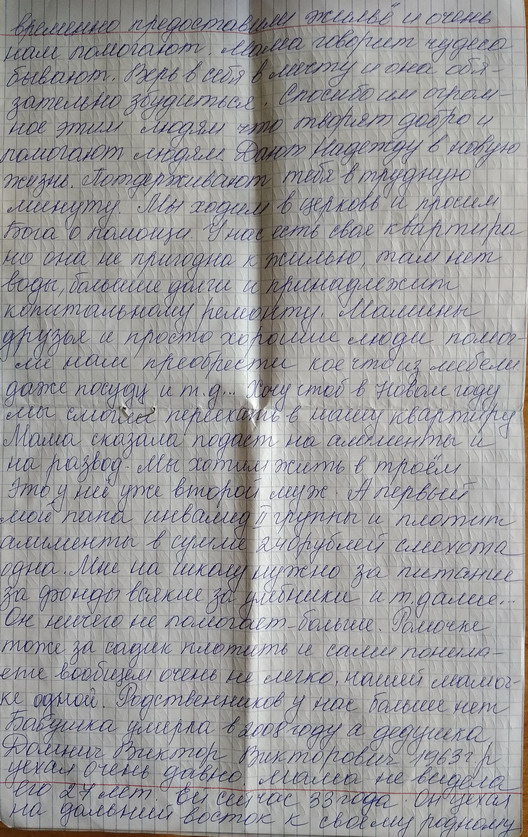 временно предоставили жильё и очень
нам помогают. Мама говорит чудеса
бывают. Верь в себя в мечту и она обя-
зательно збудиться. Спосибо им огром-
ное этим людям что творят добро и
помогают людям. Дают надежду в новую
жизнь. Потдерживают тебя в трудную
минуту. Мы ходим в церковь и просим
Бога о помощи. У нас есть своя квартира
но она не пригодна к жилью, там нет
воды, большие долги и принадлежит
копитальному ремонту. Мамины
друзья и просто хорошие люди помог-
ли нам преобрести кое что из мебели
даже посуду и т.д... Хочу чтоб в Новом году
мы смогли переехать в нашу квартиру
Мама сказала подаст на алименты и
на развод. Мы хотим жить в троём
Это у неё уже второй муж. А первый
мой папа инвалид II группы и плотит
алименты в сумме 240рублей смехота
одна. Мне на школу нужно за питание
за фонды всякие за учебники и т.далие...
Он ничего не помогает больше. Ромочке
тоже за садик плотить и сами понема-
ете вообщем очень не легко нашей мамоч-
ке одной. Родственников у нас больше нет
Бабушка умерла в 2008 году а дедушка
Виктор Викторович 1963г/р
уехал очень давно мама не видела
его 27 лет. Ей сейчас 33 года. Он уехал
на дальний восток к своему родному